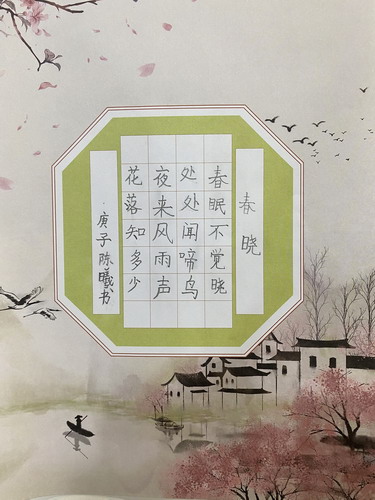 春晓
春眠不觉晓
处处闻啼鸟
夜来风雨声
花落知多少
庚子陈曦书